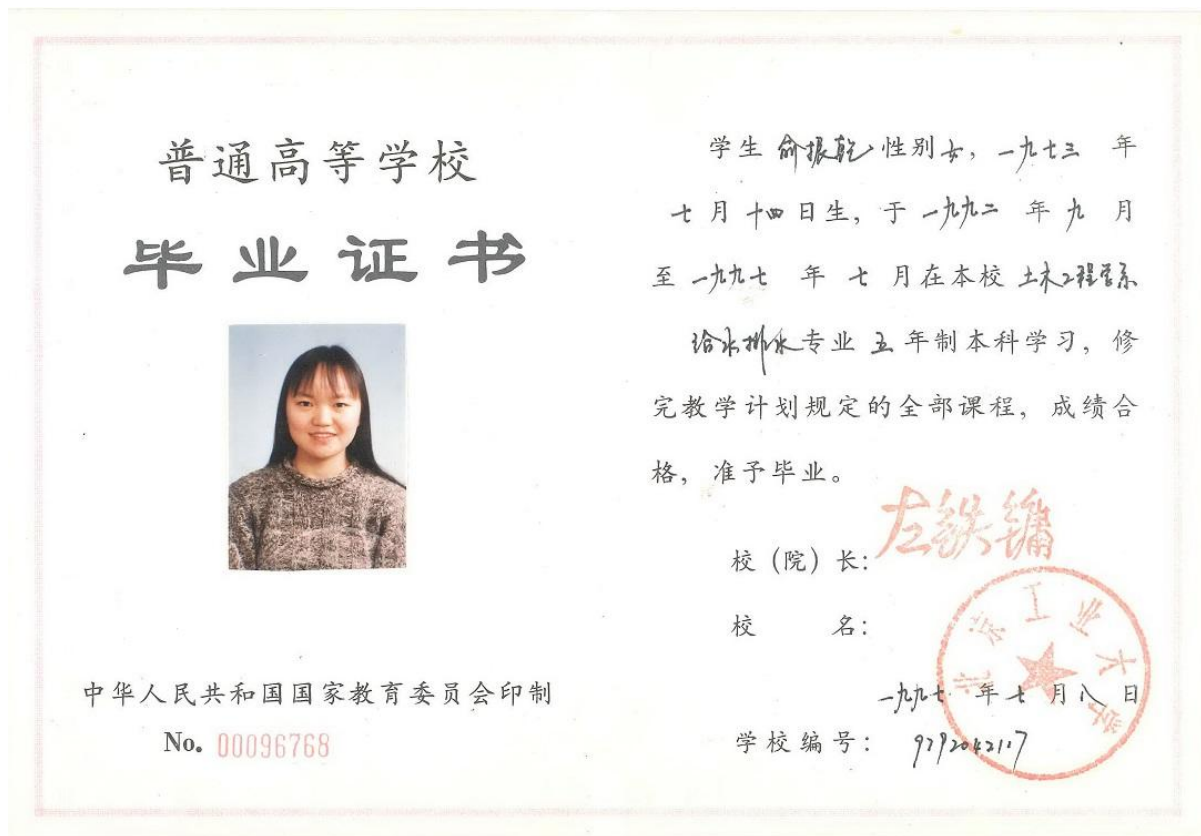 普通高等学校
毕业证书
中华人民共和国国家教育委员会印制
No. 00096768
学生 俞振乾 性别 女, 一九七三 年
七月十四日生, 于 一九九二 年 九 月
至 一九九七 年 七 月在本校 土木工程系
给水排水专业 五 年制本科学习, 修
完教学计划规定的全部课程, 成绩合
格, 准予毕业。
校(院)长: 左铁镛
校 名:
北京工业大学
一九九七 年 七 月 八 日
学校编号: 9292042117